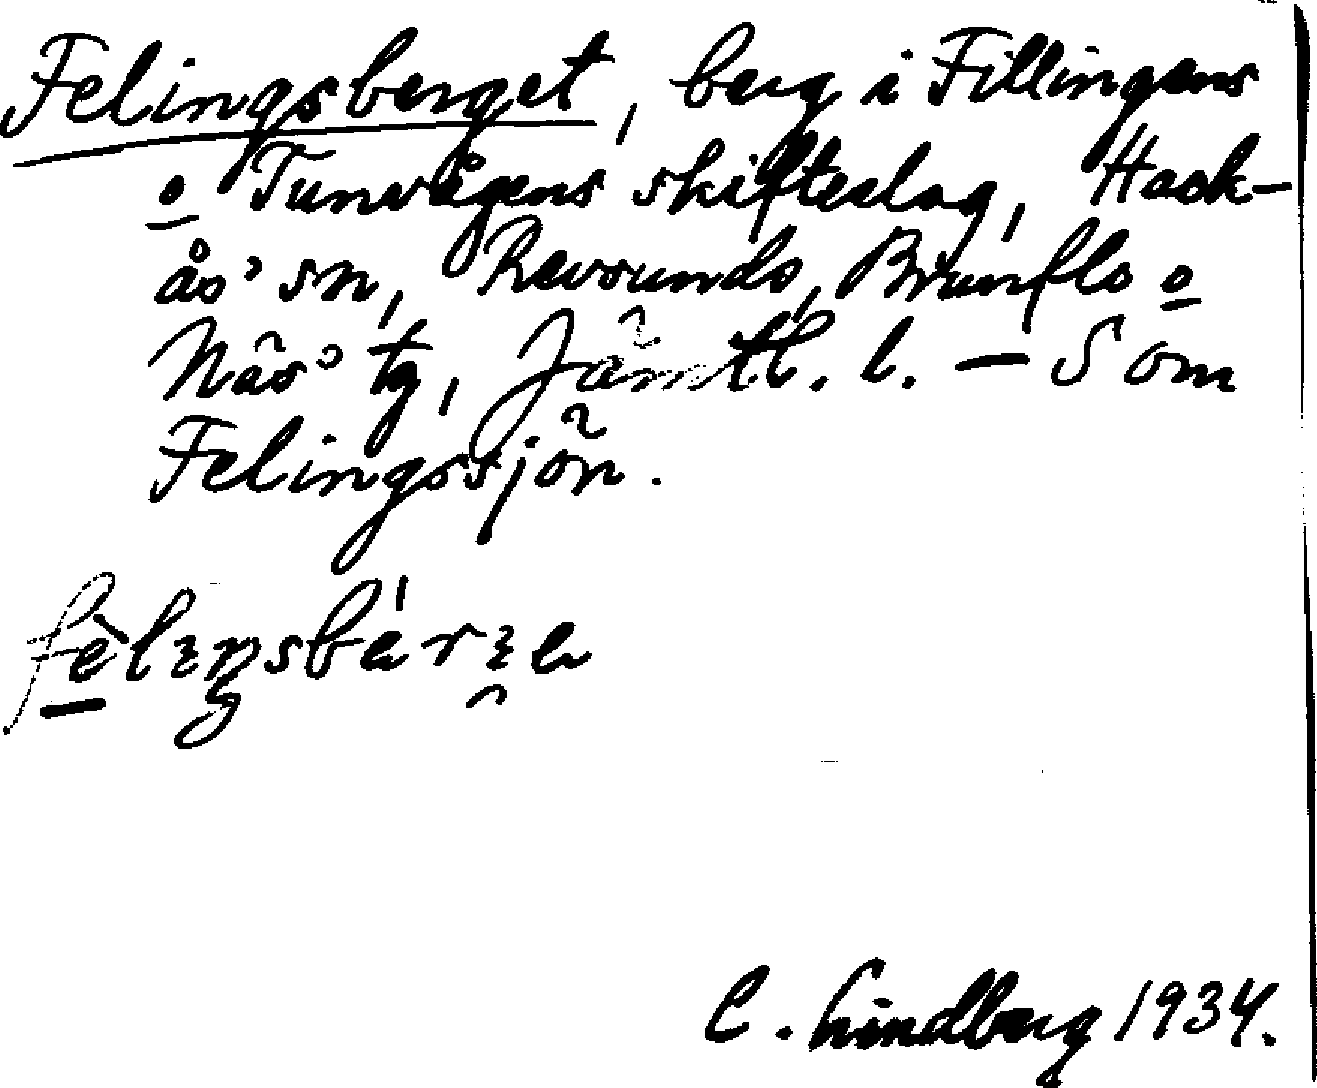 Felingsberget, berg i Fillingens
o Tunvågens skifteslag, Hack-
ås' sn, Revsunds, Brunflo o
Näs' tg, Jämtl. l. – Som
Felingssjön.
C. Lindberg 1934.